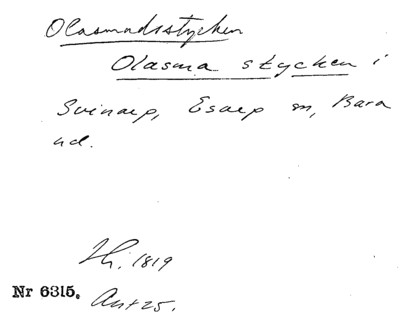 Olasmadsstycken
Olasma stycken i
Svinarp, Esarp sn, Bara
hd.
Th. 1819
Nr 6315. Ant 25.